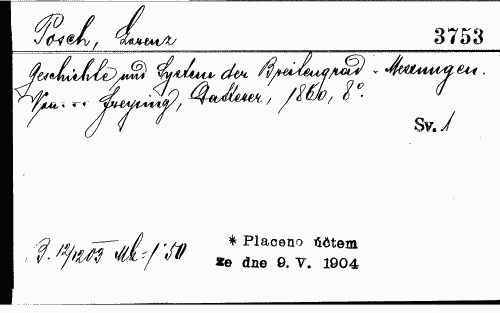 Posch, Lorenz 3753
Geschichte und System der Breitengrad-Messungen.
Von ... Freysing, Datterer, 1860, 8°.
Sv. 1
* Placeno účtem
ze dne 9. V. 1904
B. 12/12 03 Mk = 1·50